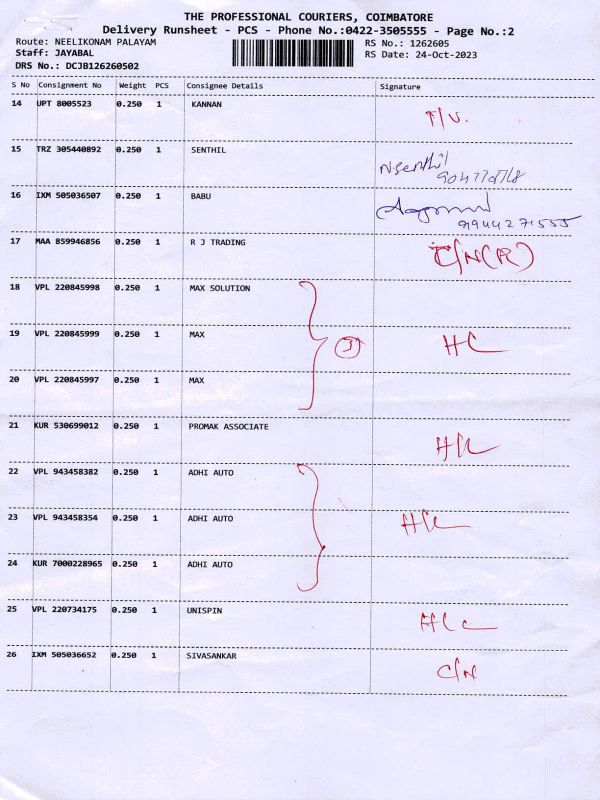 THE PROFESSIONAL COURIERS, COIMBATORE
Delivery Runsheet - PCS - Phone No.:0422-3505555 - Page No.:2
Route: NEELIKONAM PALAYAM
RS No.: 1262605
Staff: JAYABAL
RS Date: 24-Oct-2023
DRS No.: DCJB126260502
S No Consignment No Weight PCS Consignee Details Signature
14 UPT 8005523 0.250 1 KANNAN
15 TRZ 305440892 0.250 1 SENTHIL N.Senthil
16 IXM 505036507 0.250 1 BABU
9944271555
17 MAA 859946856 0.250 1 R J TRADING C/N(R)
18 VPL 220845998 0.250 1 MAX SOLUTION
19 VPL 220845999 0.250 1 MAX 3 HC
20 VPL 220845997 0.250 1 MAX
21 KUR 530699012 0.250 1 PROMAK ASSOCIATE
22 VPL 943458382 0.250 1 ADHI AUTO
23 VPL 943458354 0.250 1 ADHI AUTO
24 KUR 7000228965 0.250 1 ADHI AUTO
25 VPL 220734175 0.250 1 UNISPIN
26 IXM 505036652 0.250 1 SIVASANKAR C/N